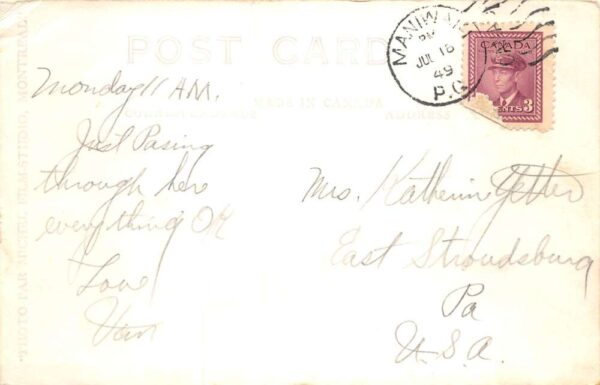 POST CARD
MADE IN CANADA
CORRESPONDENCE
ADDRESS
PHOTO PAR NICHEL FILM STUDIO, MONTREAL
MANIWAKI
PM
JUL 18
49
P.Q.
CANADA
CENTS 3
Monday 11 AM.
Just Pasing
through here
everything OK
Love
Van
Mrs. Katherine Yetter
East Stroudsburg
Pa
U.S.A.